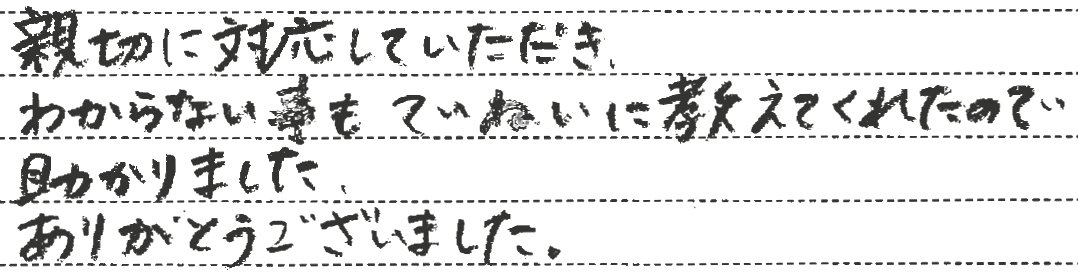 親切に対応していただき、
わからない事もていねいに教えてくれたので
助かりました、
ありがとうございました。